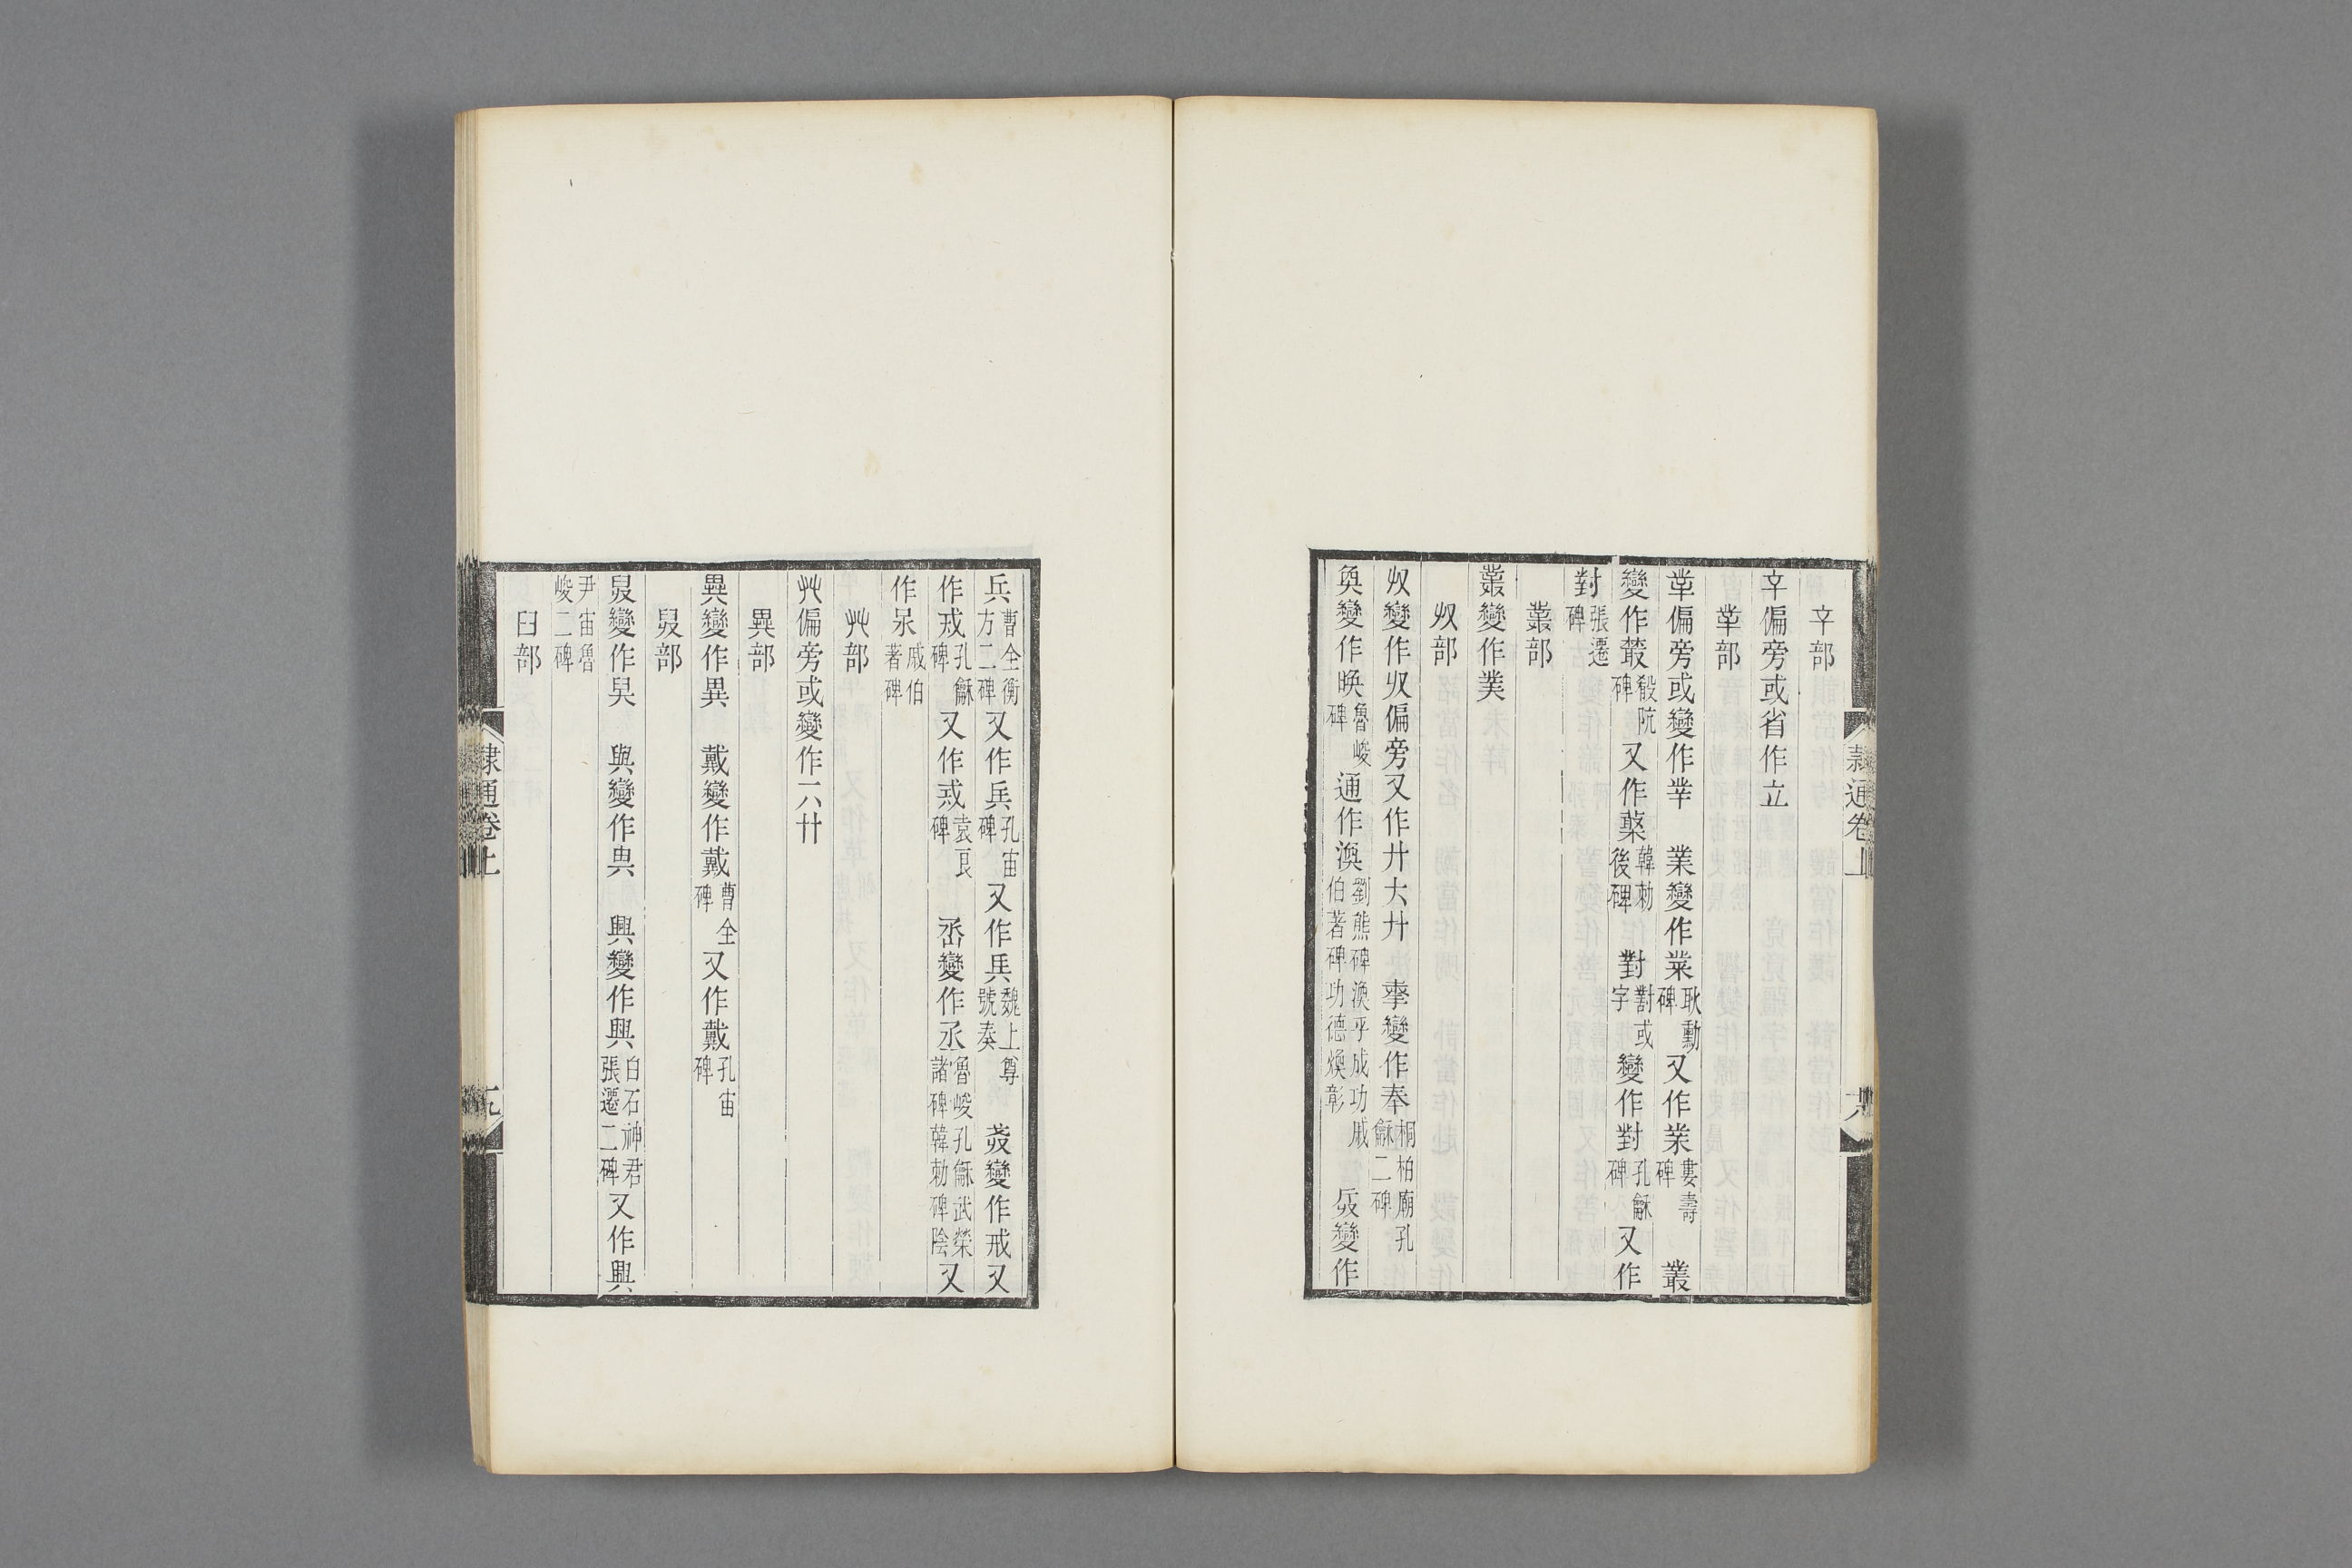 辛部
辛偏旁或省作立
丵部
丵偏旁或變作丵　業變作業耿勳碑又作業婁壽碑　叢
變作藂殽阬碑又作藂韓勑後碑　對字對或變作對孔龢碑又作
對張遷碑
菐部
菐變作業
𠬞部
𠬞變作廾偏旁又作廾大廾　奉變作奉桐柏廟孔龢二碑
奐變作㬇魯峻碑　通作渙劉熊碑渙乎成功戚伯著碑功德煥彰　變作
兵曹全衡方二碑又作兵孔宙碑又作兵魏上尊號奏　戒變作戒又
作戒孔龢碑又作戒袁良碑　丞變作丞魯峻孔龢武榮諸碑韓勑碑陰又
作戚伯著碑
𠬜部
𠬜偏旁或變作六廾
異部
異變作異　戴變作戴曹全碑又作戴孔宙碑
舁部
舁變作　與變作與　興變作興白石神君張遷二碑又作興
尹宙魯峻二碑
𦥑部
隸通卷上
隸通卷上